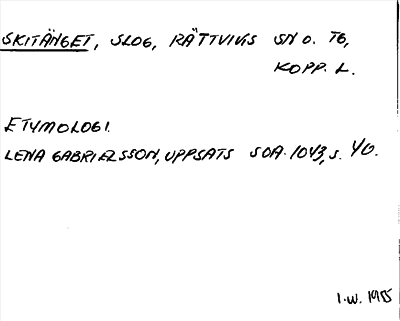 SKITÄNGET, SLOG, RÄTTVIKS SN O. TG,
KOPP. L.
ETYMOLOGI.
LENA GABRIELSSON, UPPSATS SOA. 1043, S. 40.
I.W. 1985